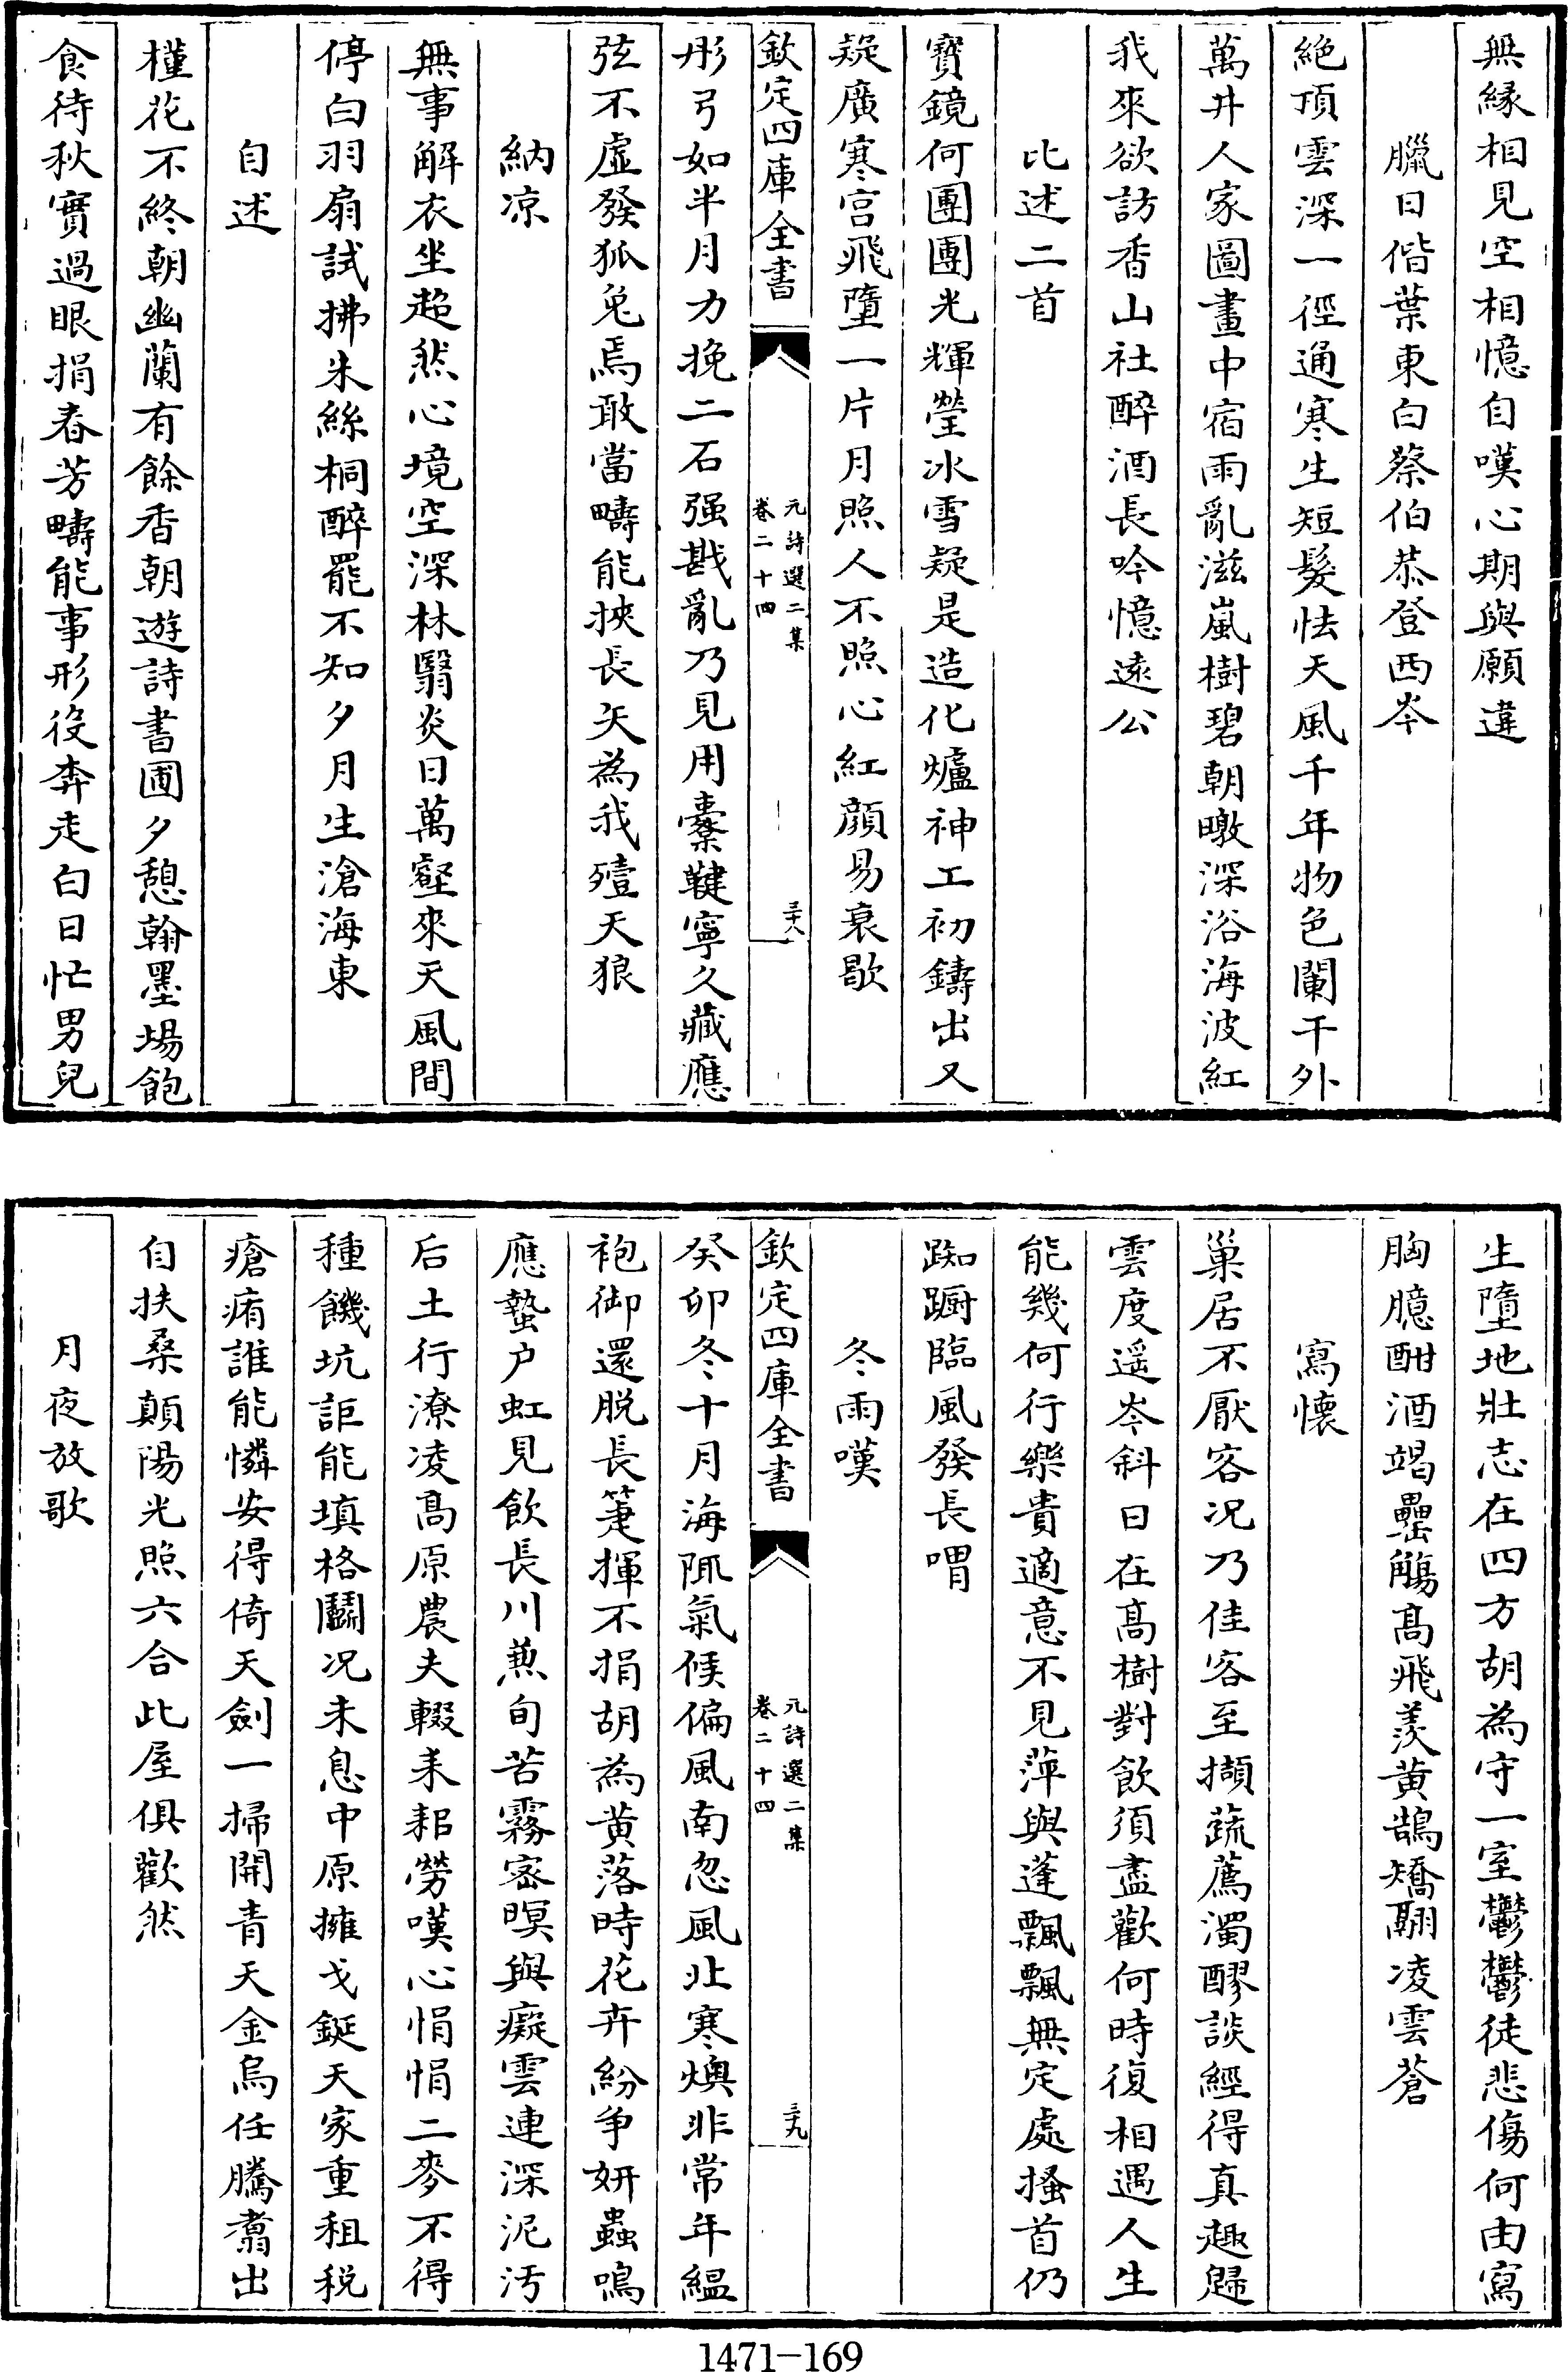 無縁相見空相憶自嘆心期與願違
臘日偕葉東白蔡伯恭登西岑
絶頂雲深一徑通寒生短髮怯天風千年物色闌干外
萬井人家圖畫中宿雨亂滋嵐樹碧朝暾深浴海波紅
我來欲訪香山社醉酒長吟憶遠公
比述二首
寶鏡何團團光輝瑩冰雪疑是造化爐神工初鑄出又
疑廣寒宫飛墮一片月照人不照心紅顔易衰歇
欽定四庫全書
元詩選二集
卷二十四
三十八
彤弓如半月力挽二石强戡亂乃見用櫜鞬寧久藏應
弦不虛發狐兎焉敢當疇能挾長矢為我殪天狼
納凉
無事解衣坐超然心境空深林翳炎日萬壑來天風間
停白羽扇試拂朱絲桐醉罷不知夕月生滄海東
自述
槿花不終朝幽蘭有餘香朝遊詩書圃夕憩翰墨場飽
食待秋實過眼捐春芳疇能事形役奔走白日忙男兒
生墮地壯志在四方胡為守一室鬱鬱徒悲傷何由寫
胸臆酣酒竭罍觴髙飛羡黄鵠矯翮凌雲蒼
寫懷
巢居不厭客况乃佳客至擷蔬薦濁醪談經得真趣歸
雲度遥岑斜日在髙樹對飲須盡歡何時復相遇人生
能幾何行樂貴適意不見萍與蓬飄飄無定處搔首仍
踟蹰臨風發長喟
冬雨嘆
欽定四庫全書
元詩選二集
卷二十四
三十九
癸卯冬十月海陬氣候偏風南忽風北寒燠非常年緼
袍御還脱長箑揮不捐胡為黄落時花卉紛争妍蟲鳴
應蟄户虹見飲長川兼旬苦霧宻暝與癡雲連深泥汚
后土行潦凌髙原農夫輟耒耜勞嘆心悁悁二麥不得
種饑坑詎能填格鬭况未息中原擁戈鋋天家重租税
瘡痏誰能憐安得倚天劍一掃開青天金烏任騰翥出
自扶桑顛陽光照六合此屋俱歡然
月夜放歌
1471-169